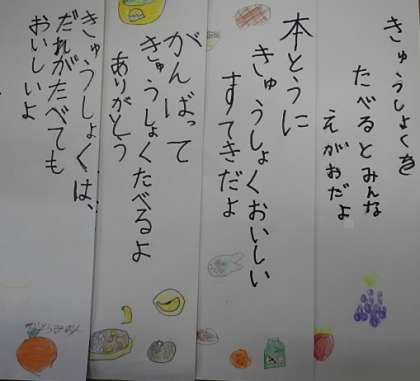 きゅうしょくを
たべるとみんな
えがおだよ
本とうに
きゅうしょくおいしい
すてきだよ
がんばって
きゅうしょくたべるよ
ありがとう
きゅうしょくは、
だれがたべても
おいしいよ